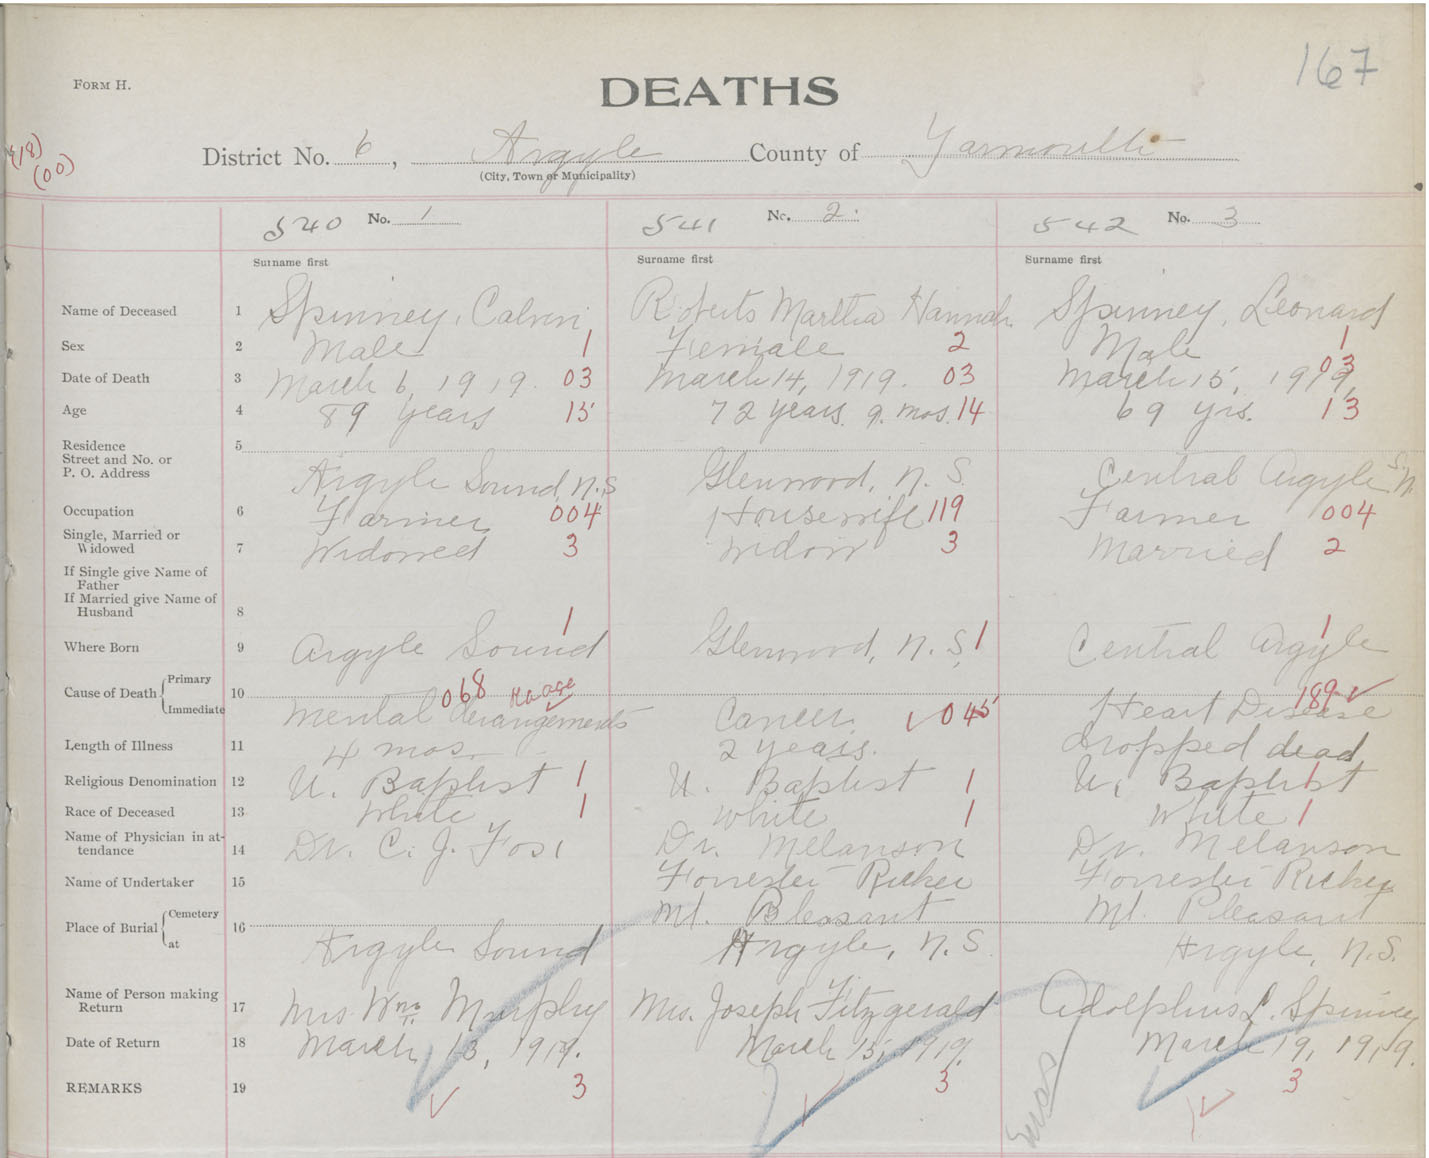 167
FORM H.
DEATHS
(18)
(00)
District No. 6, Argyle County of Yarmouth
(City, Town or Municipality)
540 No. 1 541 No. 2. 542 No. 3
Surname first Surname first Surname first
Name of Deceased 1 Spinney, Calvin Roberts Martha Hannah Spinney, Leonard
Sex 2 Male 1 Female 2 Male 1
Date of Death 3 March 6, 1919. 03 March 14, 1919. 03 March 15, 1919, 03
Age 4 89 years 15 72 years. 9. mos. 14 69 yrs. 13
Residence 5
Street and No. or
P. O. Address Argyle Sound, N.S Glenwood, N. S. Central Argyle N.S.
Occupation 6 Farmer 004 Housewife 119 Farmer 004
Single, Married or
Widowed 7 Widowed 3 Widow 3 Married 2
If Single give Name of
Father
If Married give Name of
Husband 8
Where Born 9 Argyle Sound 1 Glenwood, N. S. 1 Central Argyle 1
Cause of Death Primary 10 068 189
Immediate Mental derangements Cancer 045 Heart Disease
Length of Illness 11 4 mos. 2 years. dropped dead
Religious Denomination 12 U. Baptist 1 U. Baptist 1 U. Baptist 1
Race of Deceased 13 White 1 White 1 White 1
Name of Physician in at-
tendance 14 Dr. C. J. Fox Dr. Melanson Dr. Melanson
Name of Undertaker 15 Forrester Ricker Forrester Ricker
Place of Burial Cemetery 16 Mt. Pleasant Mt. Pleasant
at Argyle Sound Argyle, N. S. Argyle, N.S.
Name of Person making
Return 17 Mrs. Wm. Murphy Mrs. Joseph Fitzgerald Adolphus L. Spinney
Date of Return 18 March 13, 1919. March 15, 1919. March 19, 1919.
REMARKS 19 3 3 3